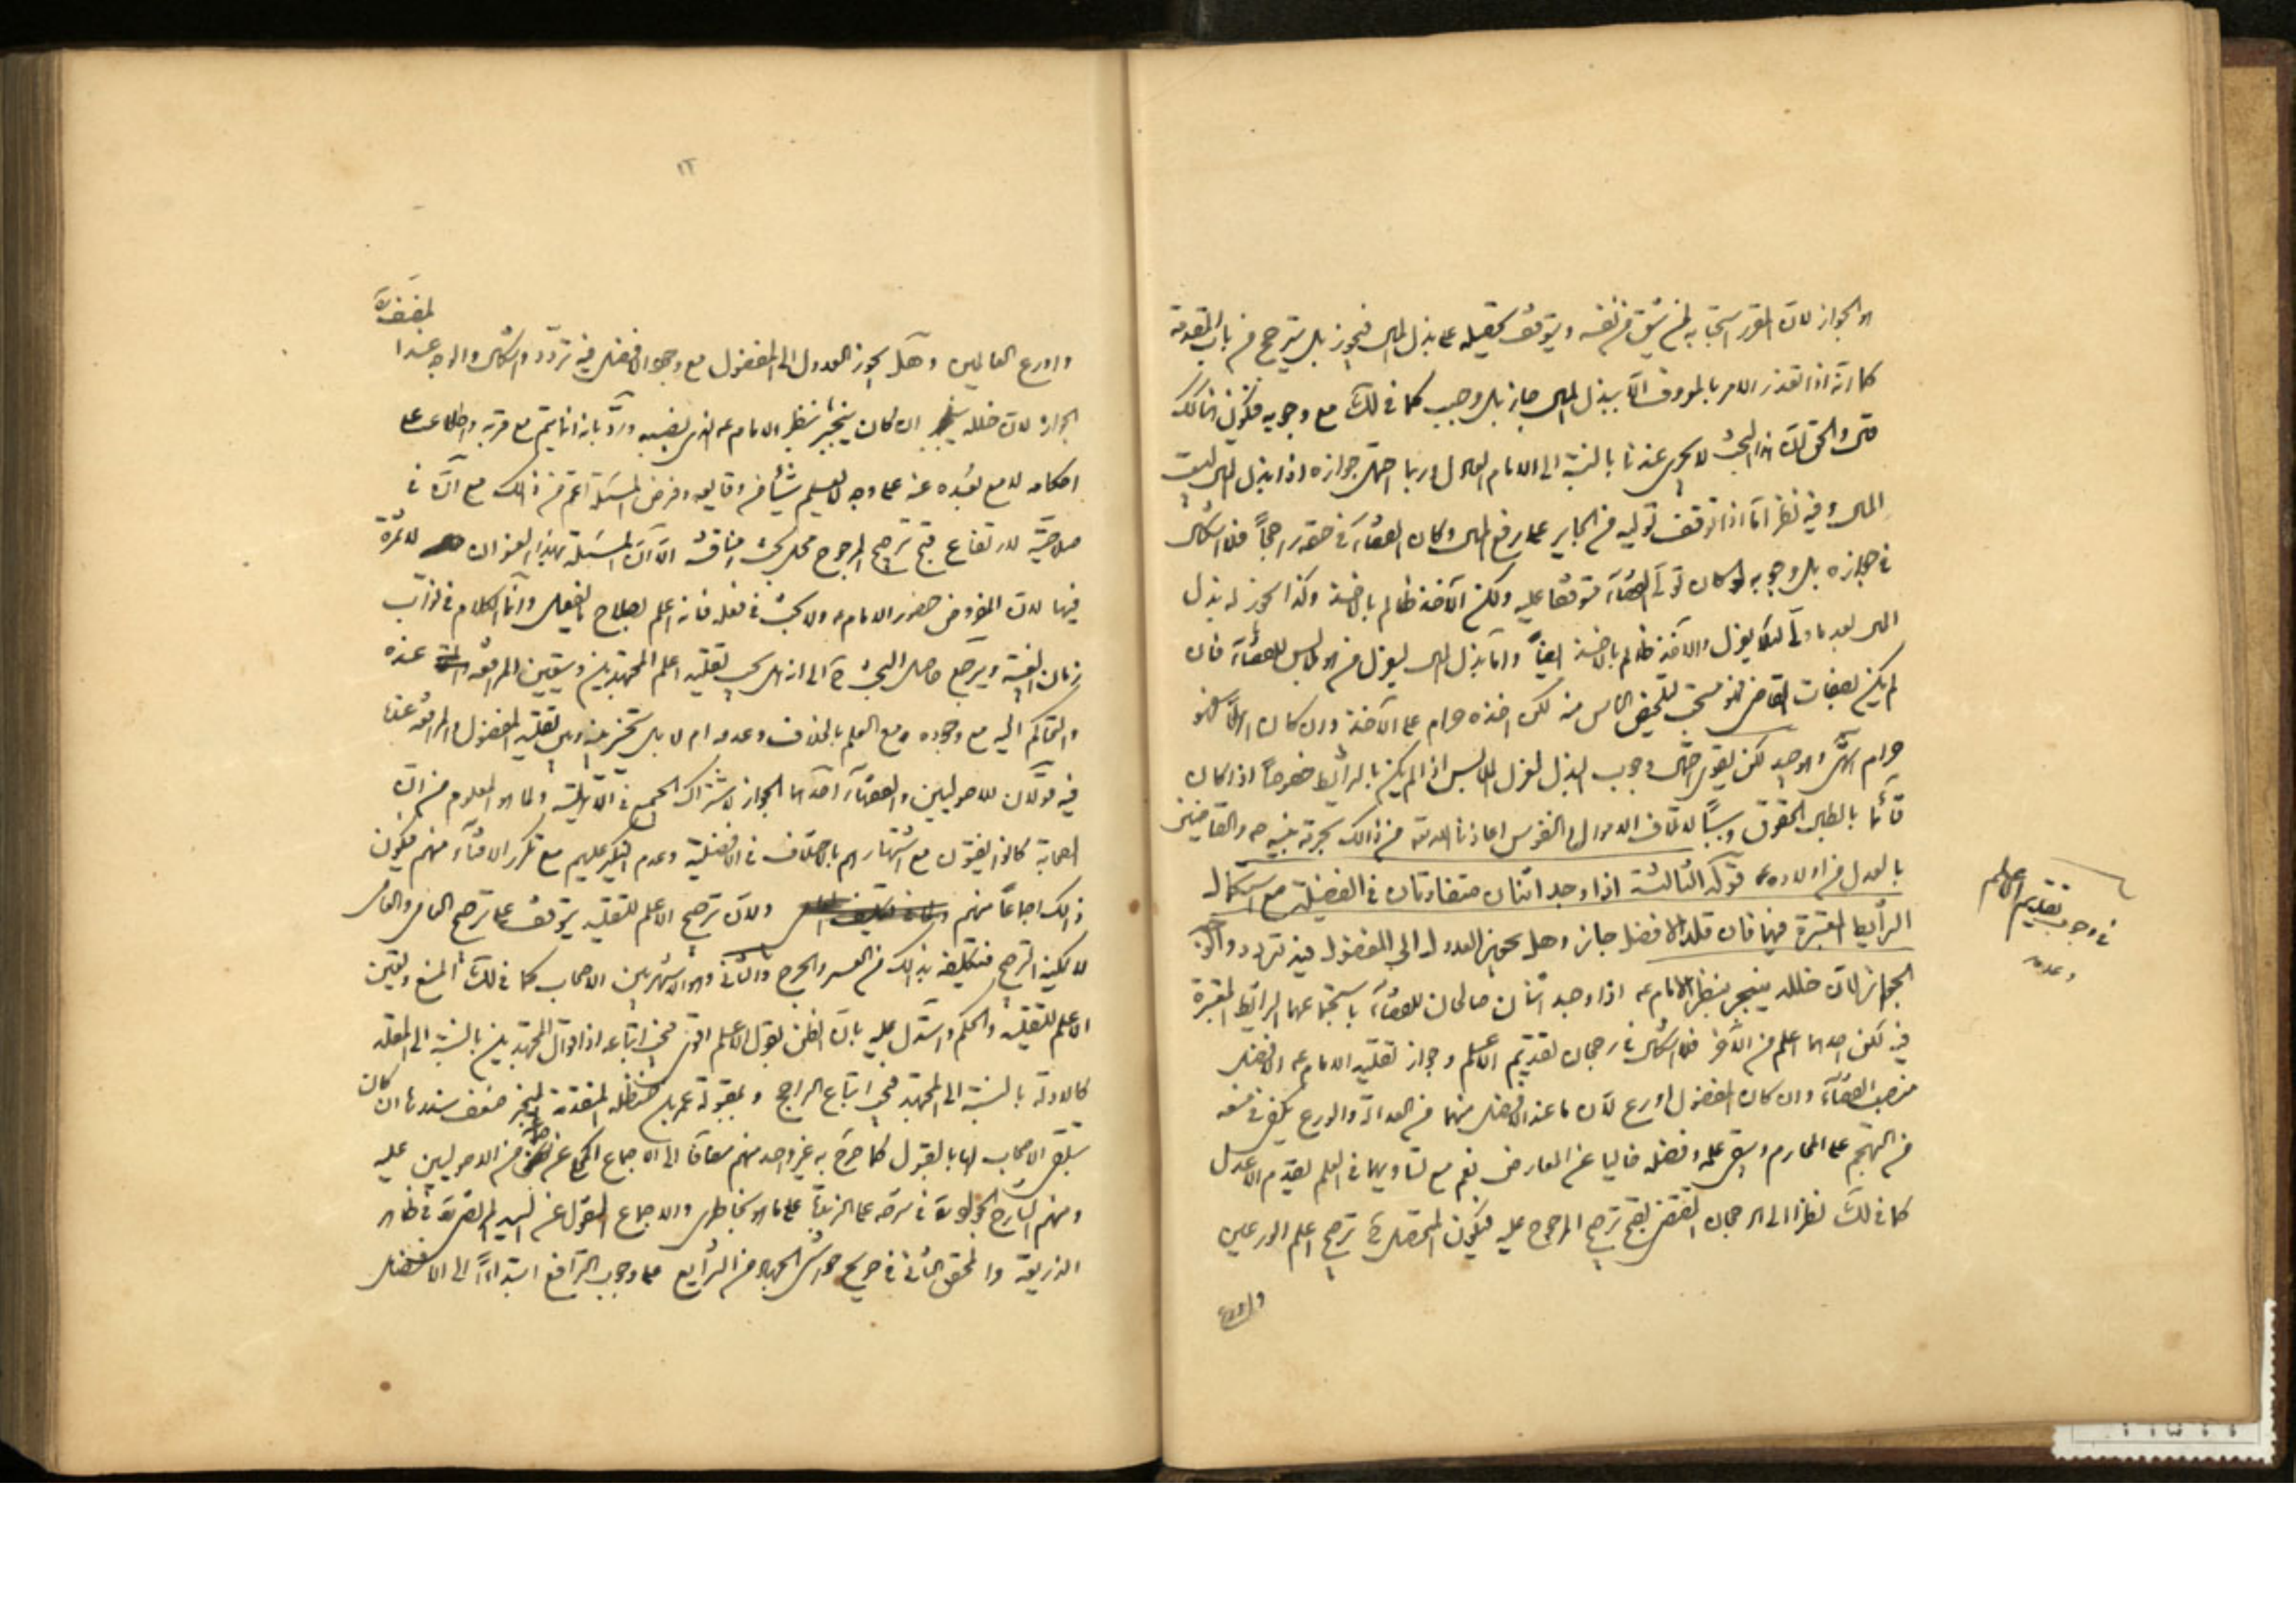 هو الجواز لان المقرر استحبابه لم يشق في نفسه ويتوقف تحصيله على بذل المال فيجوز بل يترجح من باب المقدمة
كما انه اذا تعذر الامر بالمعروف الا ببذل المال جاز بل وجب كما في لك مع وجوبه فيكون هنا كذلك
والحق ان هذا البحث لا يجرى عندنا بالنسبة الى الامام العادل وربما احتمل جوازه اذا بذل المال لبيت
المال وفيه نظر اما اذا توقف توليه من الجاير على دفع المال وكان القضاء في حقه راجحاً فلا اشكال
في جوازه بل وجوبه لو كان تولى القضاء متوقفا عليه ولكن الآخذ ظالم بالاخذ وكذا يجوز له بذل
المال بعد ما ولى لئلا يعزل والآخذ ظالم بالاخذ ايضاً واما بذل المال ليعزل من هو لابس للقضاء فان
لم يكن بصفات القاضى فهو مستحب لتخليص الناس منه لكن اخذه حرام على الآخذ وان كان اهلاً فهو
حرام لكن يقوى وجوب البذل لعزل اللابس اذا لم يكن بالشرايط خصوصاً اذا كان
قائما بابطال الحقوق وسبباً لاتلاف الاموال والنفوس اعاذنا الله تع من ذالك بحرمة نبيه ص والقاضين
بالعدل من اولاده ع قوله الثالثة اذا وجد اثنان متفاوتان في الفضيلة مع استكمال
الشرايط المعتبرة فيهما فان قلد الافضل جاز وهل يجوز العدول الى المفضول فيه تردد والوجه
الجواز لان خلله ينجبر بنظر الامام عه اذا وجد اثنان صالحان للقضاء باستجماعهما الشرايط المعتبرة
فيه لكن احدهما اعلم من الآخر فلا اشكال في رجحان تقديم الاعلم وجواز تقليد الامام عه الافضل
منصب القضاء وان كان المفضول اورع لان ما عند الافضل منهما من العدالة والورع يكفى في منعه
من التهجم على المحارم ويبقى علمه وفضله خاليا عن المعارض نعم مع تساويهما في العلم يقدم الاعدل
كما في لك نظرا الى الرجحان المقتضى لقبح ترجيح المرجوح عليه فيكون المتحصل ح ترجيح اعلم الورعين
واورع
في وجوب تقديم الاعلم
وعدمه
١٢
واورع العالمين وهل يجوز العدول الى المفضول مع وجود الافضل فيه تردد واشكال والوجه عند
المصنف ره
الجواز لان خلله ان كان ينجبر بنظر الامام عه الذى نصبه ورد بانه انما يتم مع قربه واطلاعه على
احكامه لا مع بعده عنه على وجه لا يعلم شيئا من وقايعه وفرض المسئلة اعم من ذالك مع ان في
صلاحيته لارتفاع قبح ترجيح المرجوح محل بحث ومناقشة الا ان المسئلة بهذا العنوان لا ثمرة
فيها لان المفروض حضور الامام عه ولا بحث في فعله فانه اعلم بصلاح ما يفعل وانما الكلام في نواب
زمان الغيبة ويرجع حاصل البحث ح الى انه هل يجب تقليد اعلم المجتهدين ويتعين المرافعة عنده
والتحاكم اليه مع وجوده ومع العلم بالخلاف وعدمه ام لا بل يتخير بينه وبين تقليد المفضول والمرافعة عنده
فيه قولان للاصوليين والفقهاء احدهما الجواز لاشتراك الجميع في الاهلية ولما هو المعلوم من ان
الصحابة كانوا يفتون مع اشتهارهم بالاختلاف في الافضلية وعدم النكير عليهم مع تكرر الافتاء منهم فيكون
ذالك اجماعاً منهم ولان ترجيح الاعلم للتقليد يتوقف على ترجيح العامى والعامى
لا يمكنه الترجيح فتكليفه بذالك من العسر والحرج والثاني وهو الاشهر بين الاصحاب كما في لك المنع وتعين
الاعلم للتقليد والحكم واستدل عليه بان الظن بقول الاعلم اقوى فيجب اتباعه اذ اقوال المجتهدين بالنسبة الى المقلد
كالادلة بالنسبة الى المجتهد فيجب اتباع الراجح وبمقبولة عمر بن حنظلة المتقدمة المنجبر ضعف سندها ان كان
بتلقى الاصحاب لها بالقبول كما صرح به غير واحد منهم مضافا الى الاجماع المحكى عن بعض من الاصوليين عليه
ومنهم الشارح الجواد ره في شرحه على الزبدة على ما هو بخاطرى والاجماع المنقول عن السيد المرتضى ره في ظاهر
الذريعة والمحقق الثاني في صريح حواشى الجهاد من الشرايع على وجوب الترافع ابتداءً الى الافضل